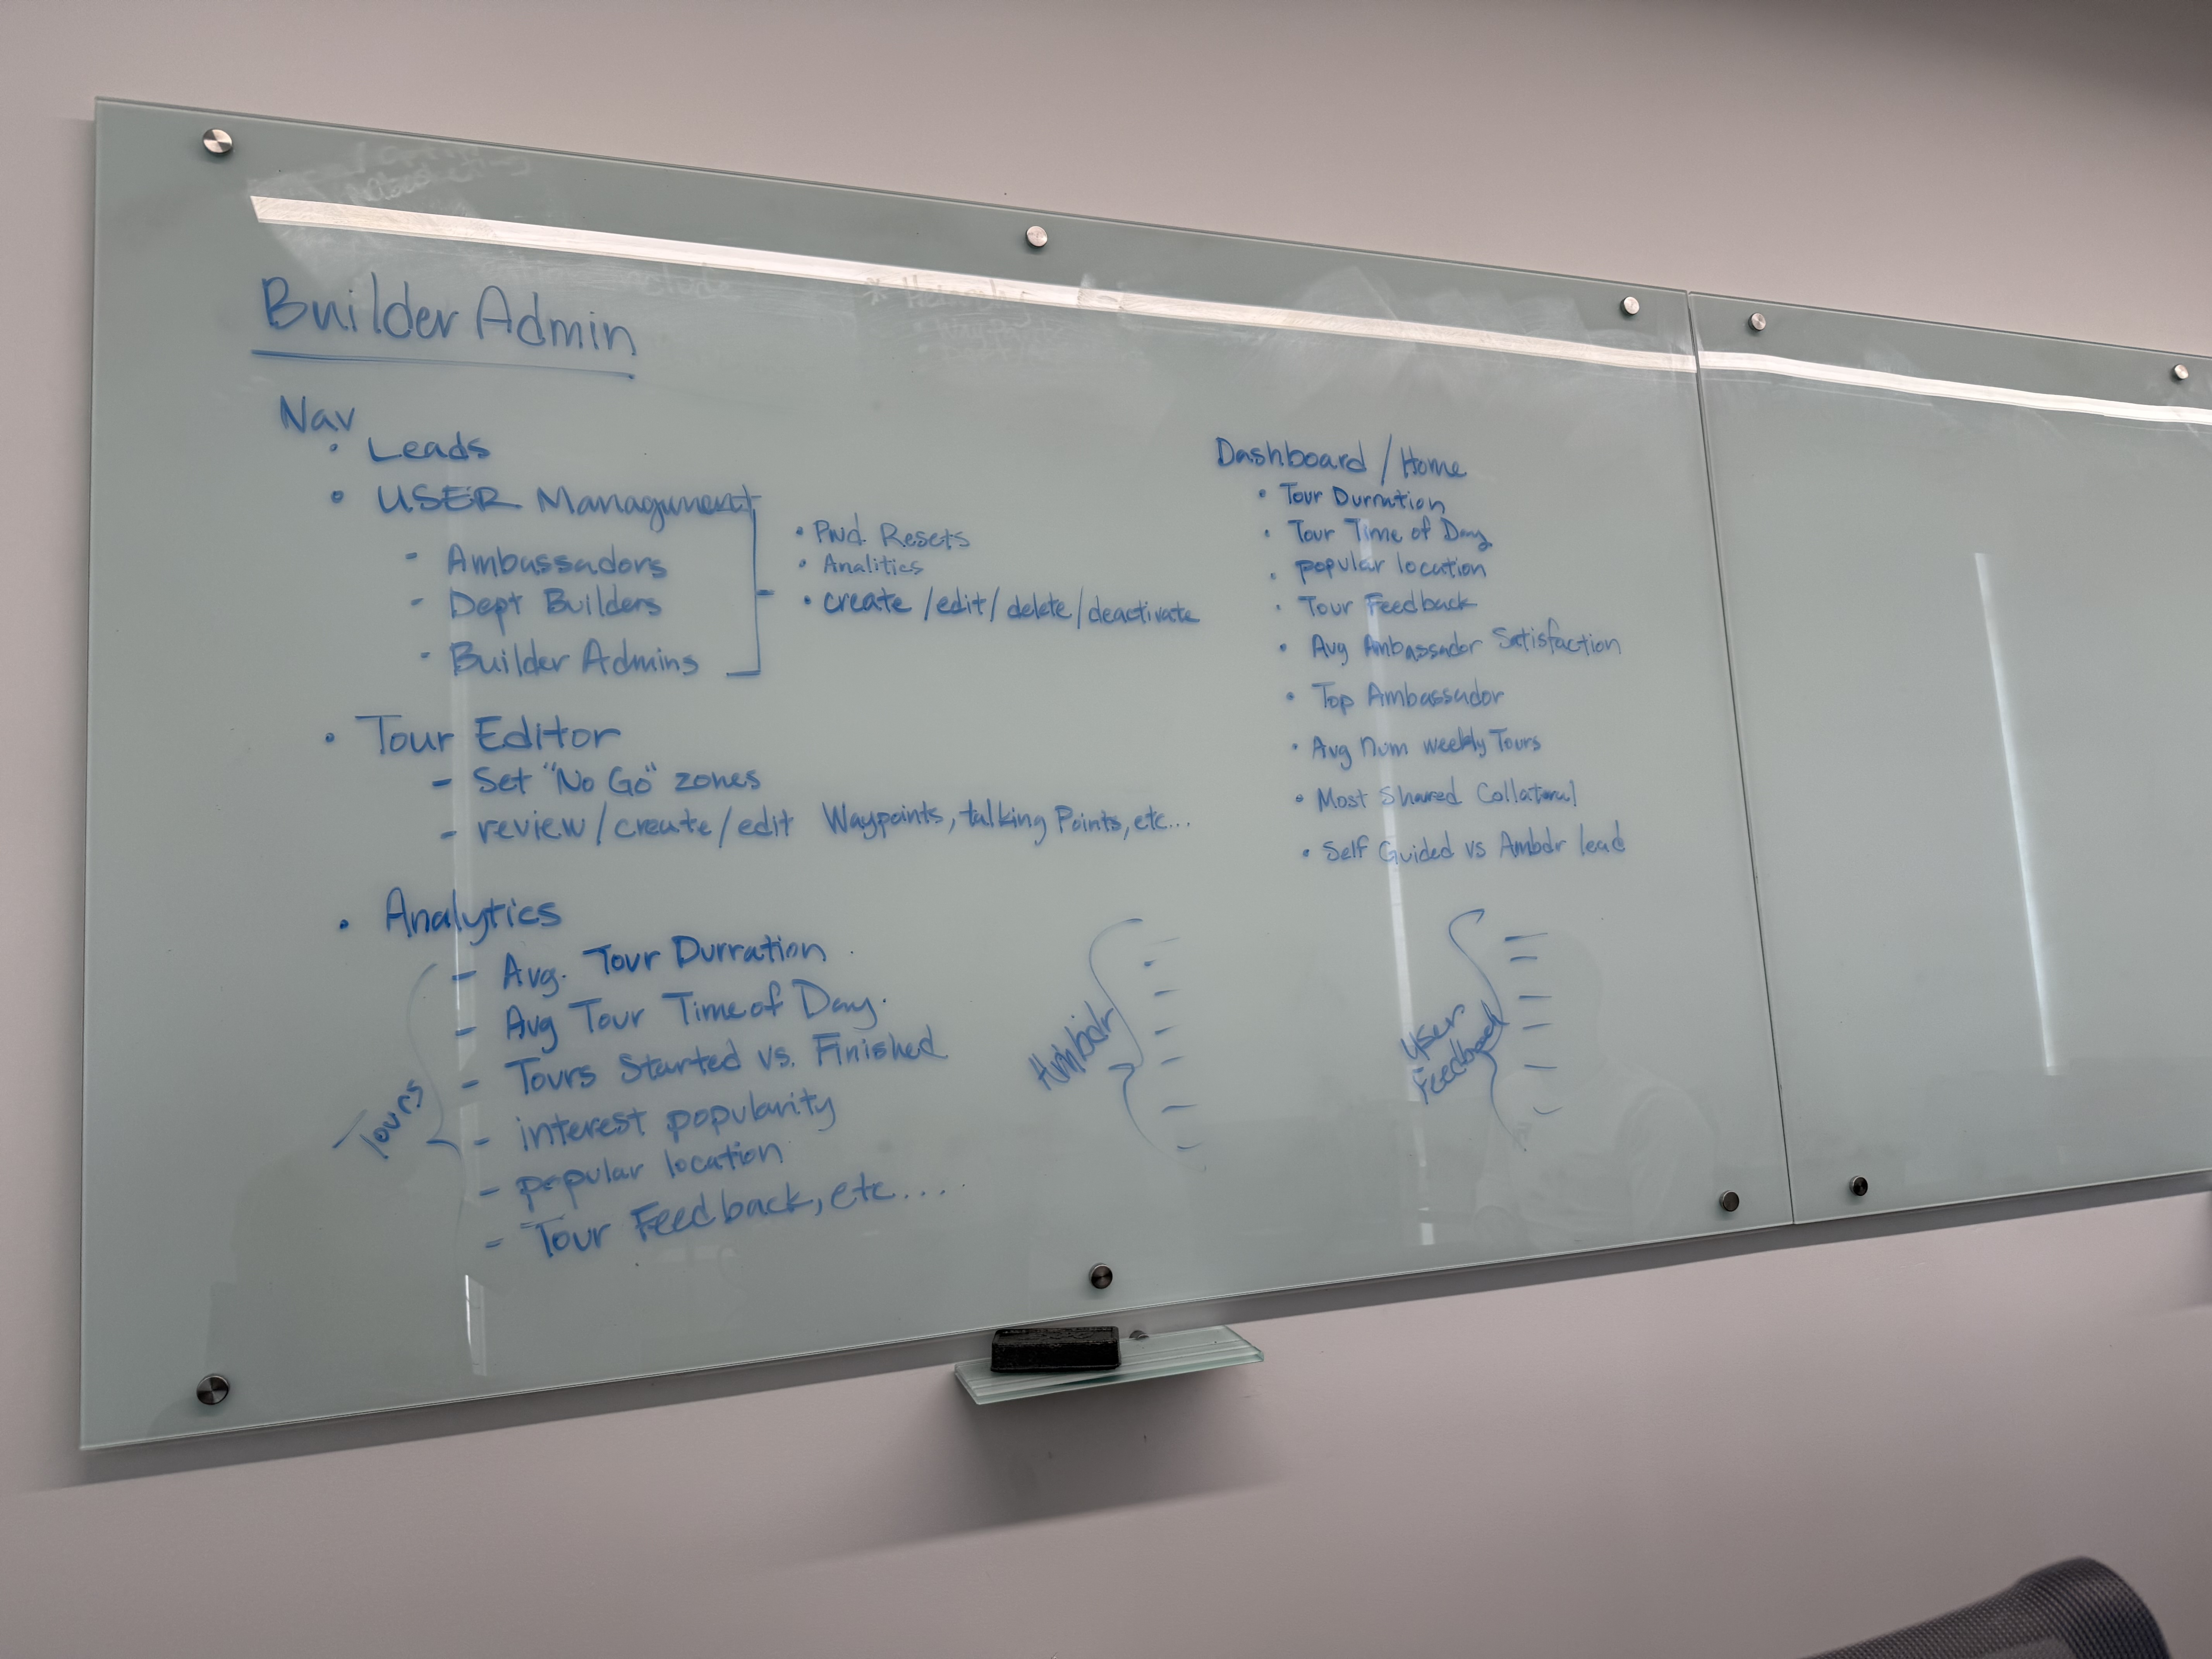 Builder Admin
Nav
• Leads
• USER Management
- Ambassadors
- Dept Builders
- Builder Admins
• Pwd. Resets
• Analitics
• create/edit/delete/deactivate
• Tour Editor
- Set "No Go" zones
- review/create/edit Waypoints, talking Points, etc...
• Analytics
Tours
- Avg. Tour Durration
- Avg Tour Time of Day
- Tours Started vs. Finished
- interest popularity
- popular location
- Tour Feedback, etc....
Ambdr
User
Feedback
Dashboard / Home
• Tour Durration
• Tour Time of Day
• popular location
• Tour Feedback
• Avg Ambassador Satisfaction
• Top Ambassador
• Avg Num weekly Tours
• Most Shared Collateral
• Self Guided vs Ambdr lead
include
*